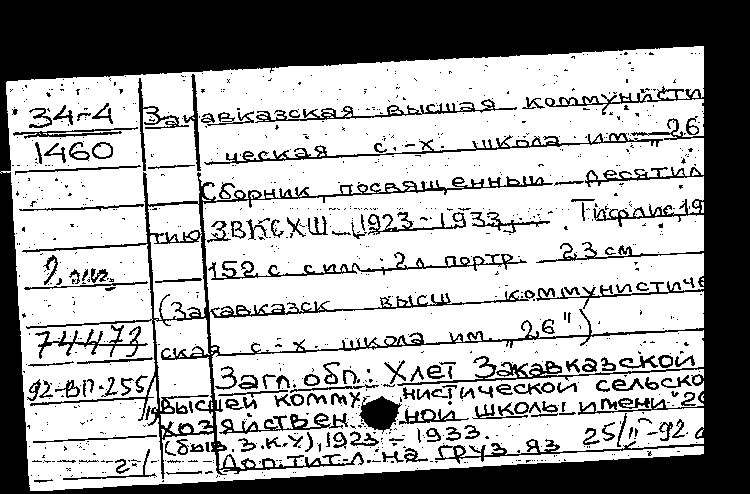 34-4
1460
Закавказская высшая коммунисти
ческая с.-х. школа им. „26
Сборник, посвященный десятил
тию ЗВКСХШ. 1923-1933. Тифлис, 19
152 с. с илл.; 2 л. портр. 23 см
(Закавказск высш коммунистиче
ская с.-х. школа им. „26")
74473
92-ВП-255/
Загл. обл.: ХЛет Закавказской
Высшей комму нистической сельско
хозяйствен ной школы имени "26
(быв. З.К.У), 1923-1933.
Доп. тит. л. на груз. яз 25/II-92